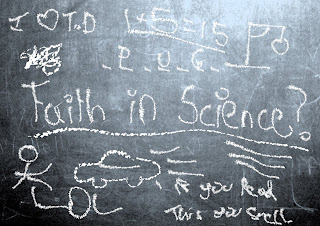 I ♡ T.D 1x5=15
_ B _ O _ G _
Faith in Science?
LOL
If you Read
This you Smell